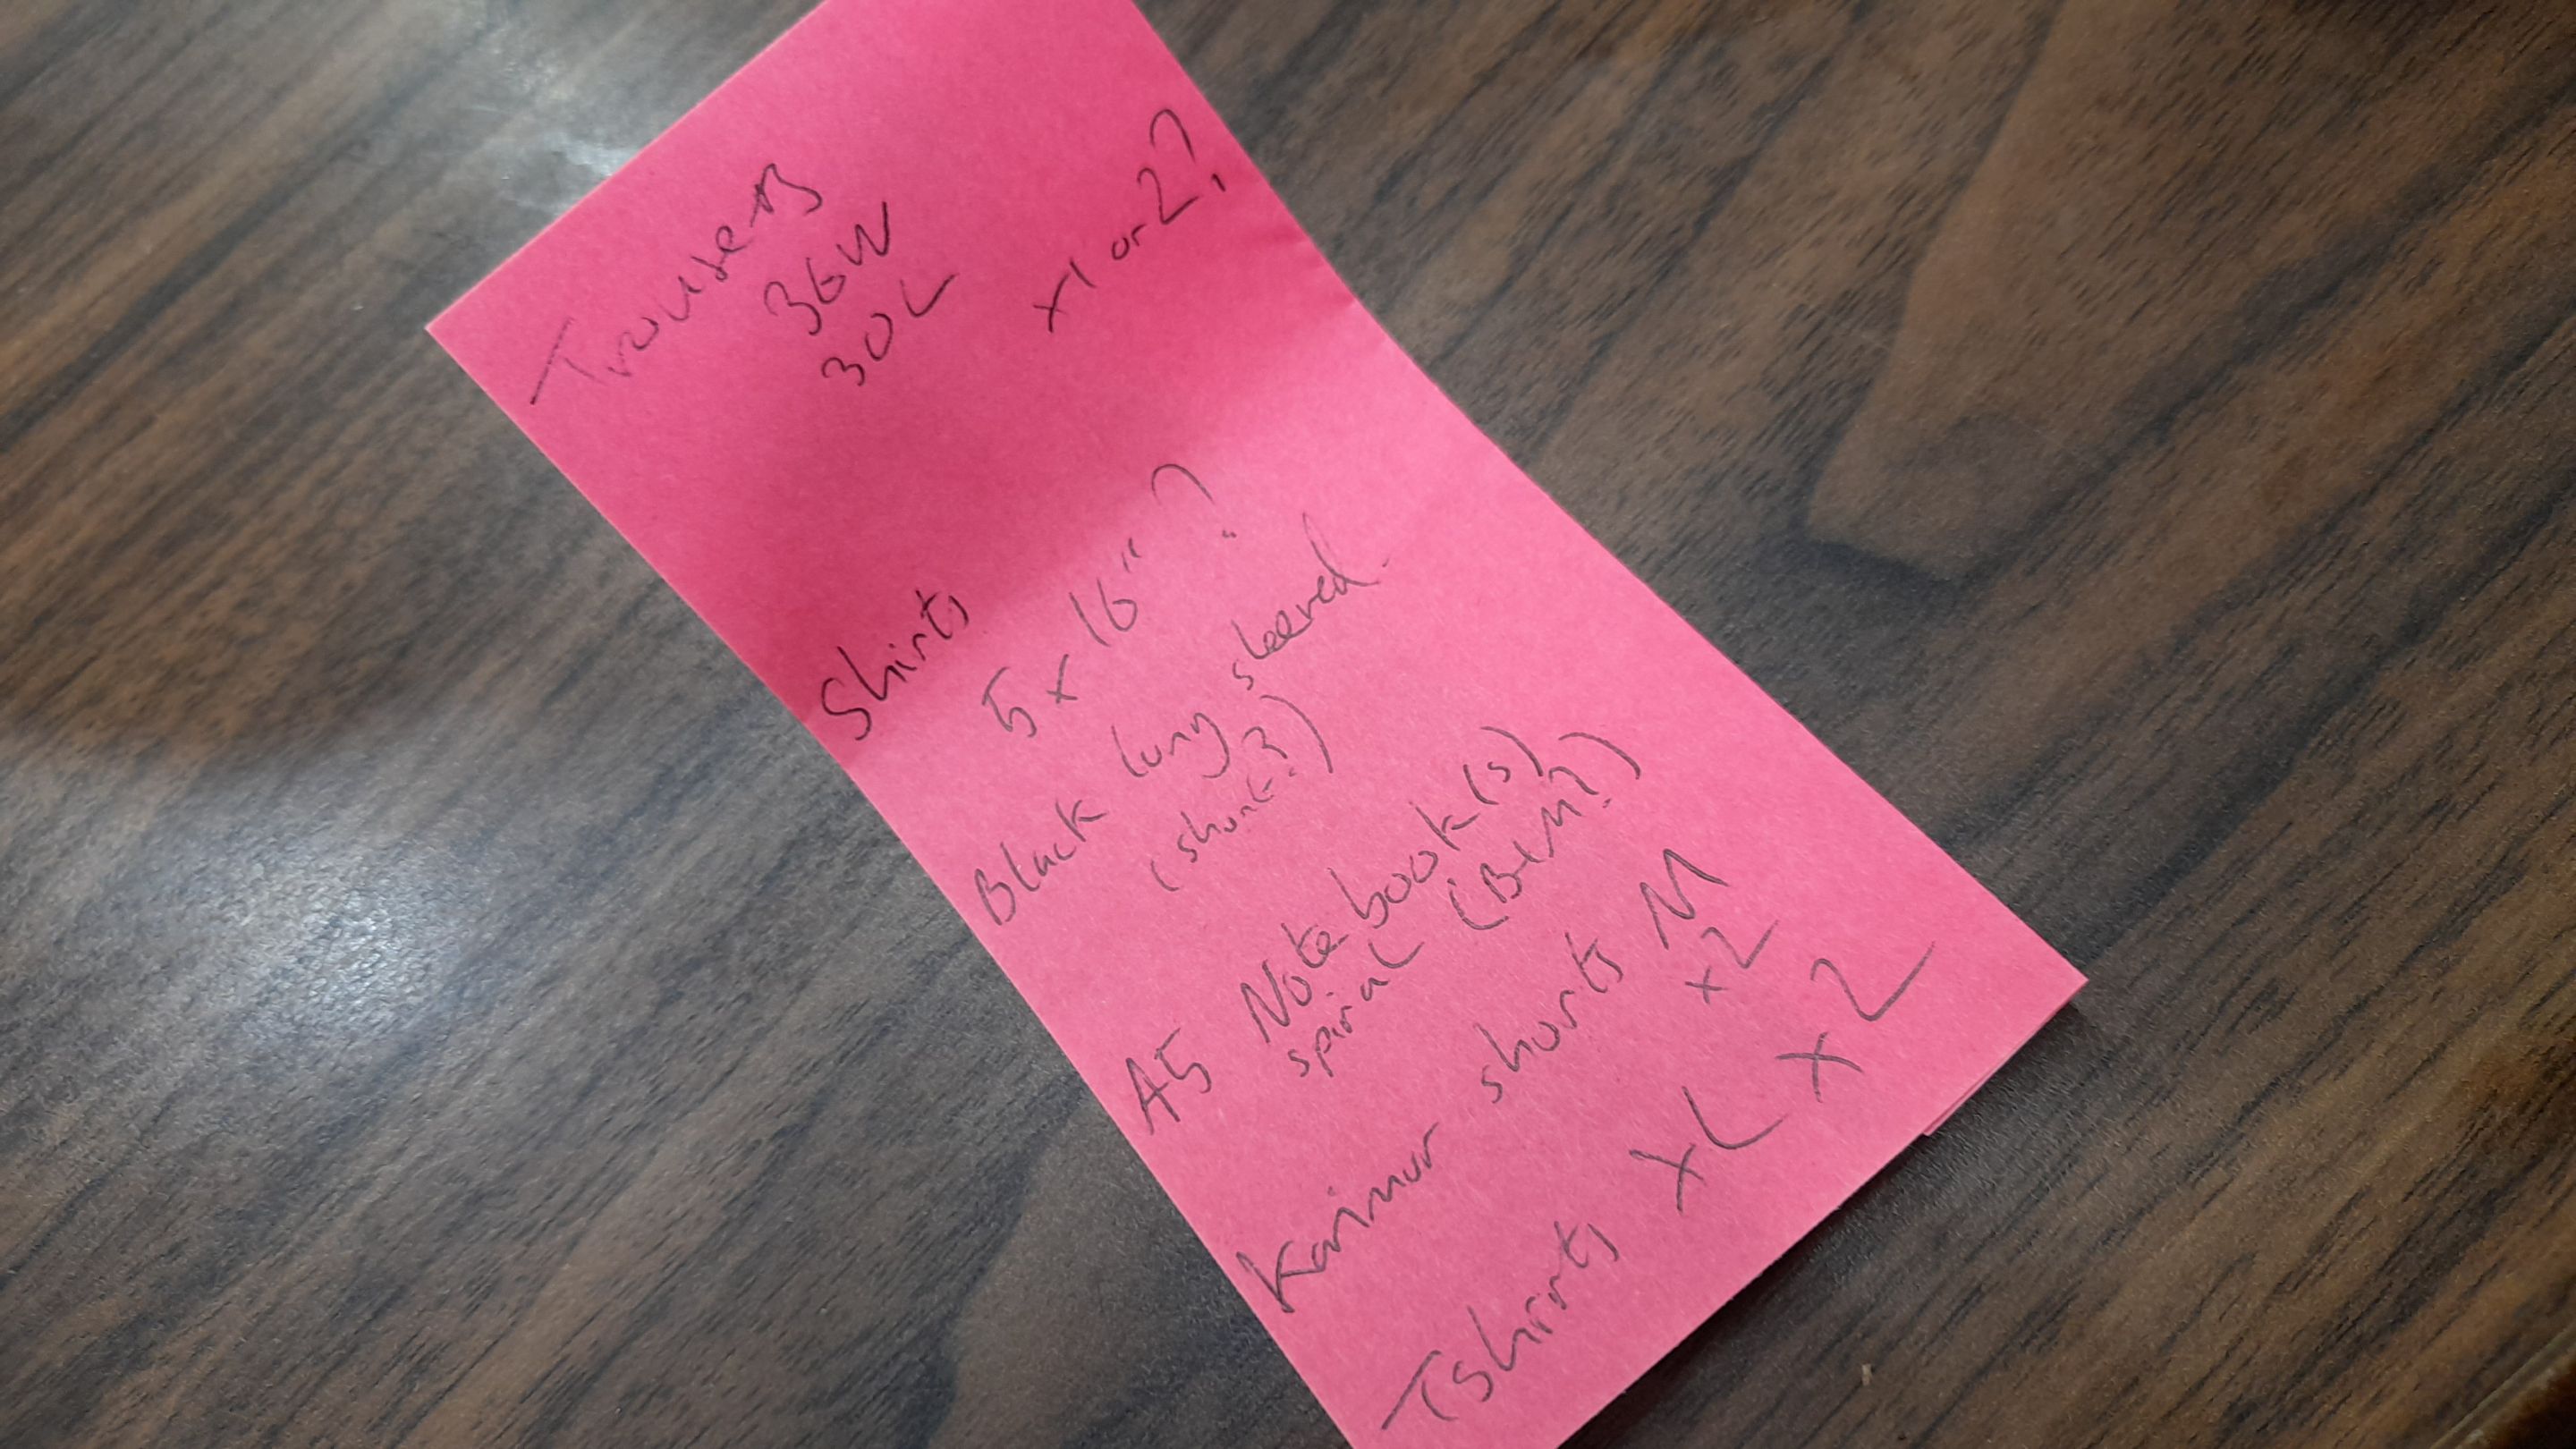 Trousers
36W
30L
x1 or 2?
Shirts
5 x 16" ?
Black long sleeved.
(short?)
A5 Notebook(s)
spiral (B+M?)
Karimor shorts M
x2
Tshirts XL x 2